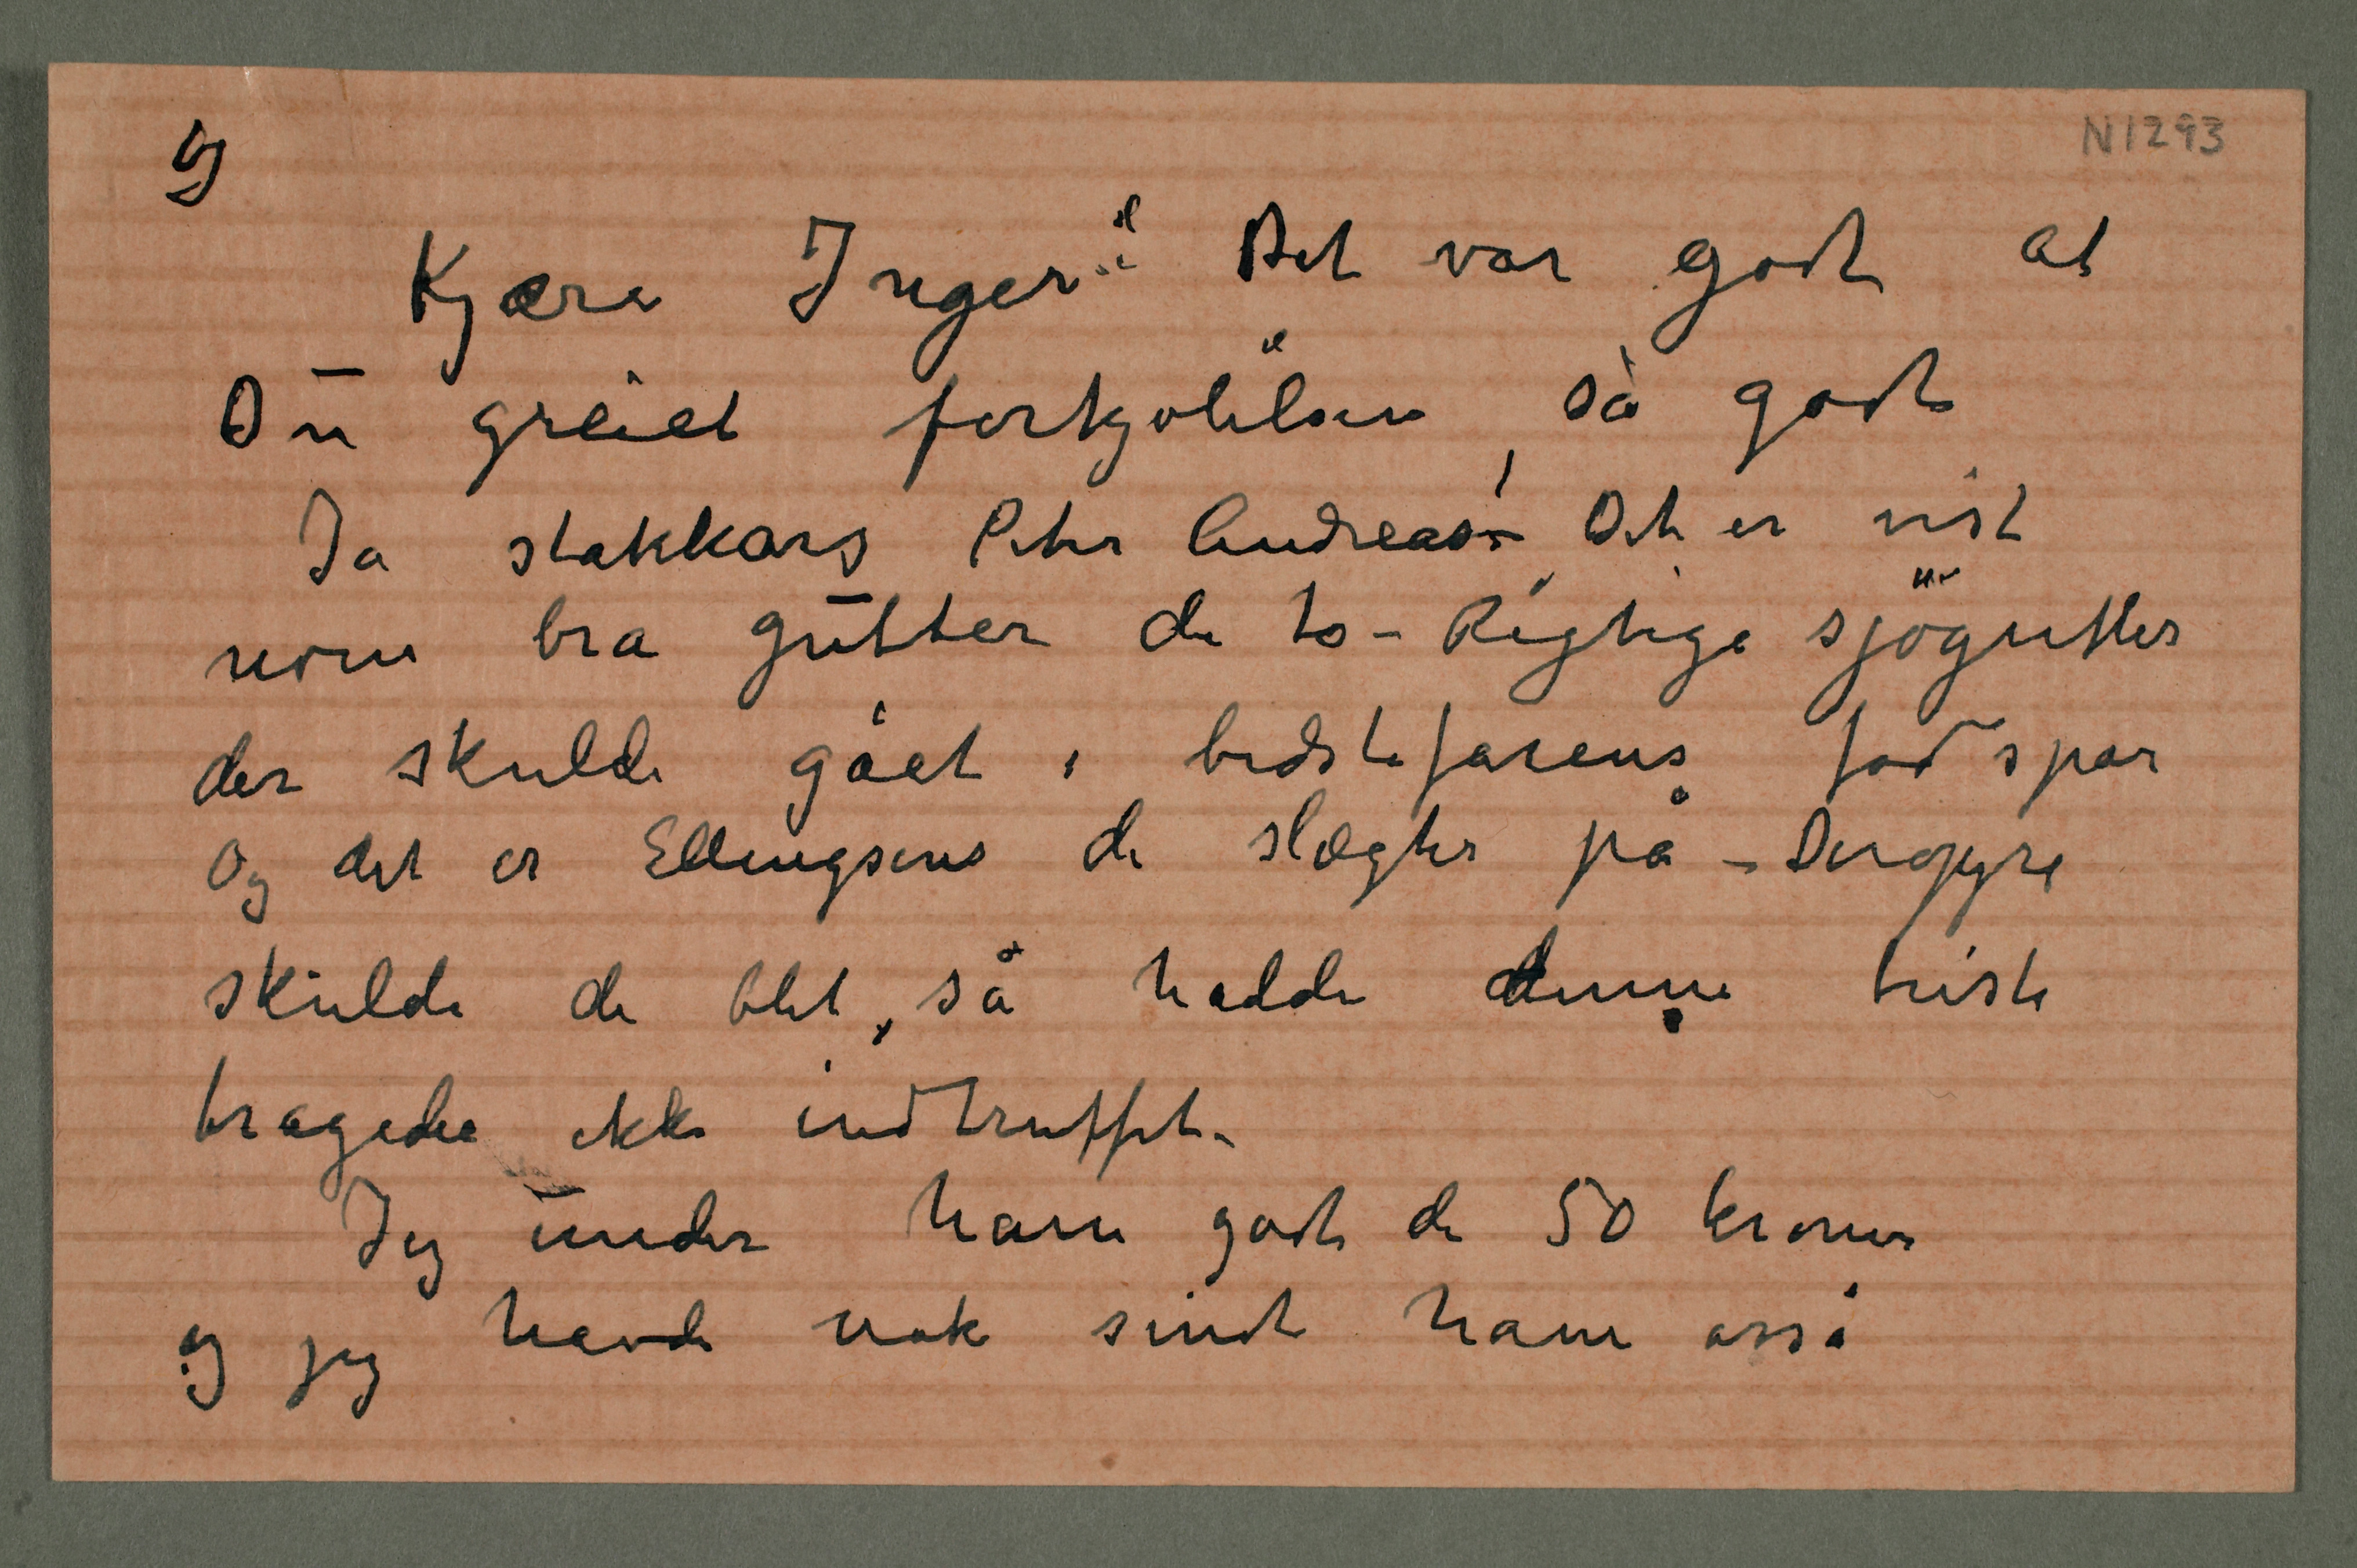 N1293
Kjære Inger! Det var godt at
Du greiet forkjølelsen så godt
Ja stakkars Peter Andreas! – Det er vist
nome bra gutter de to – Rigtige sjøgutter
der skulde gået i bedstefarens fodspor
Og det er Ellingsens de slægter på –
skulde de blet, så hadde denne triste
tragedie ikke indtruffet –
Jeg under ham godt de 50 kroner
og jeg havde nok sendt ham osså